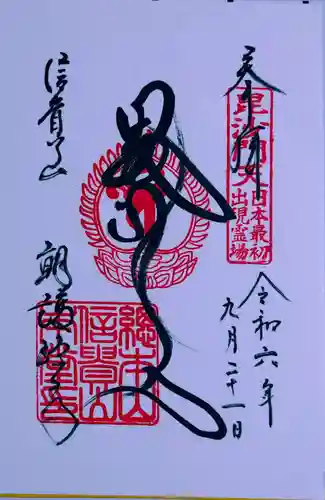 奉拝
毘沙門天
日本最初
出現霊場
令和六年
九月二十一日
信貴山
朝護孫子寺
總本山
信貴山